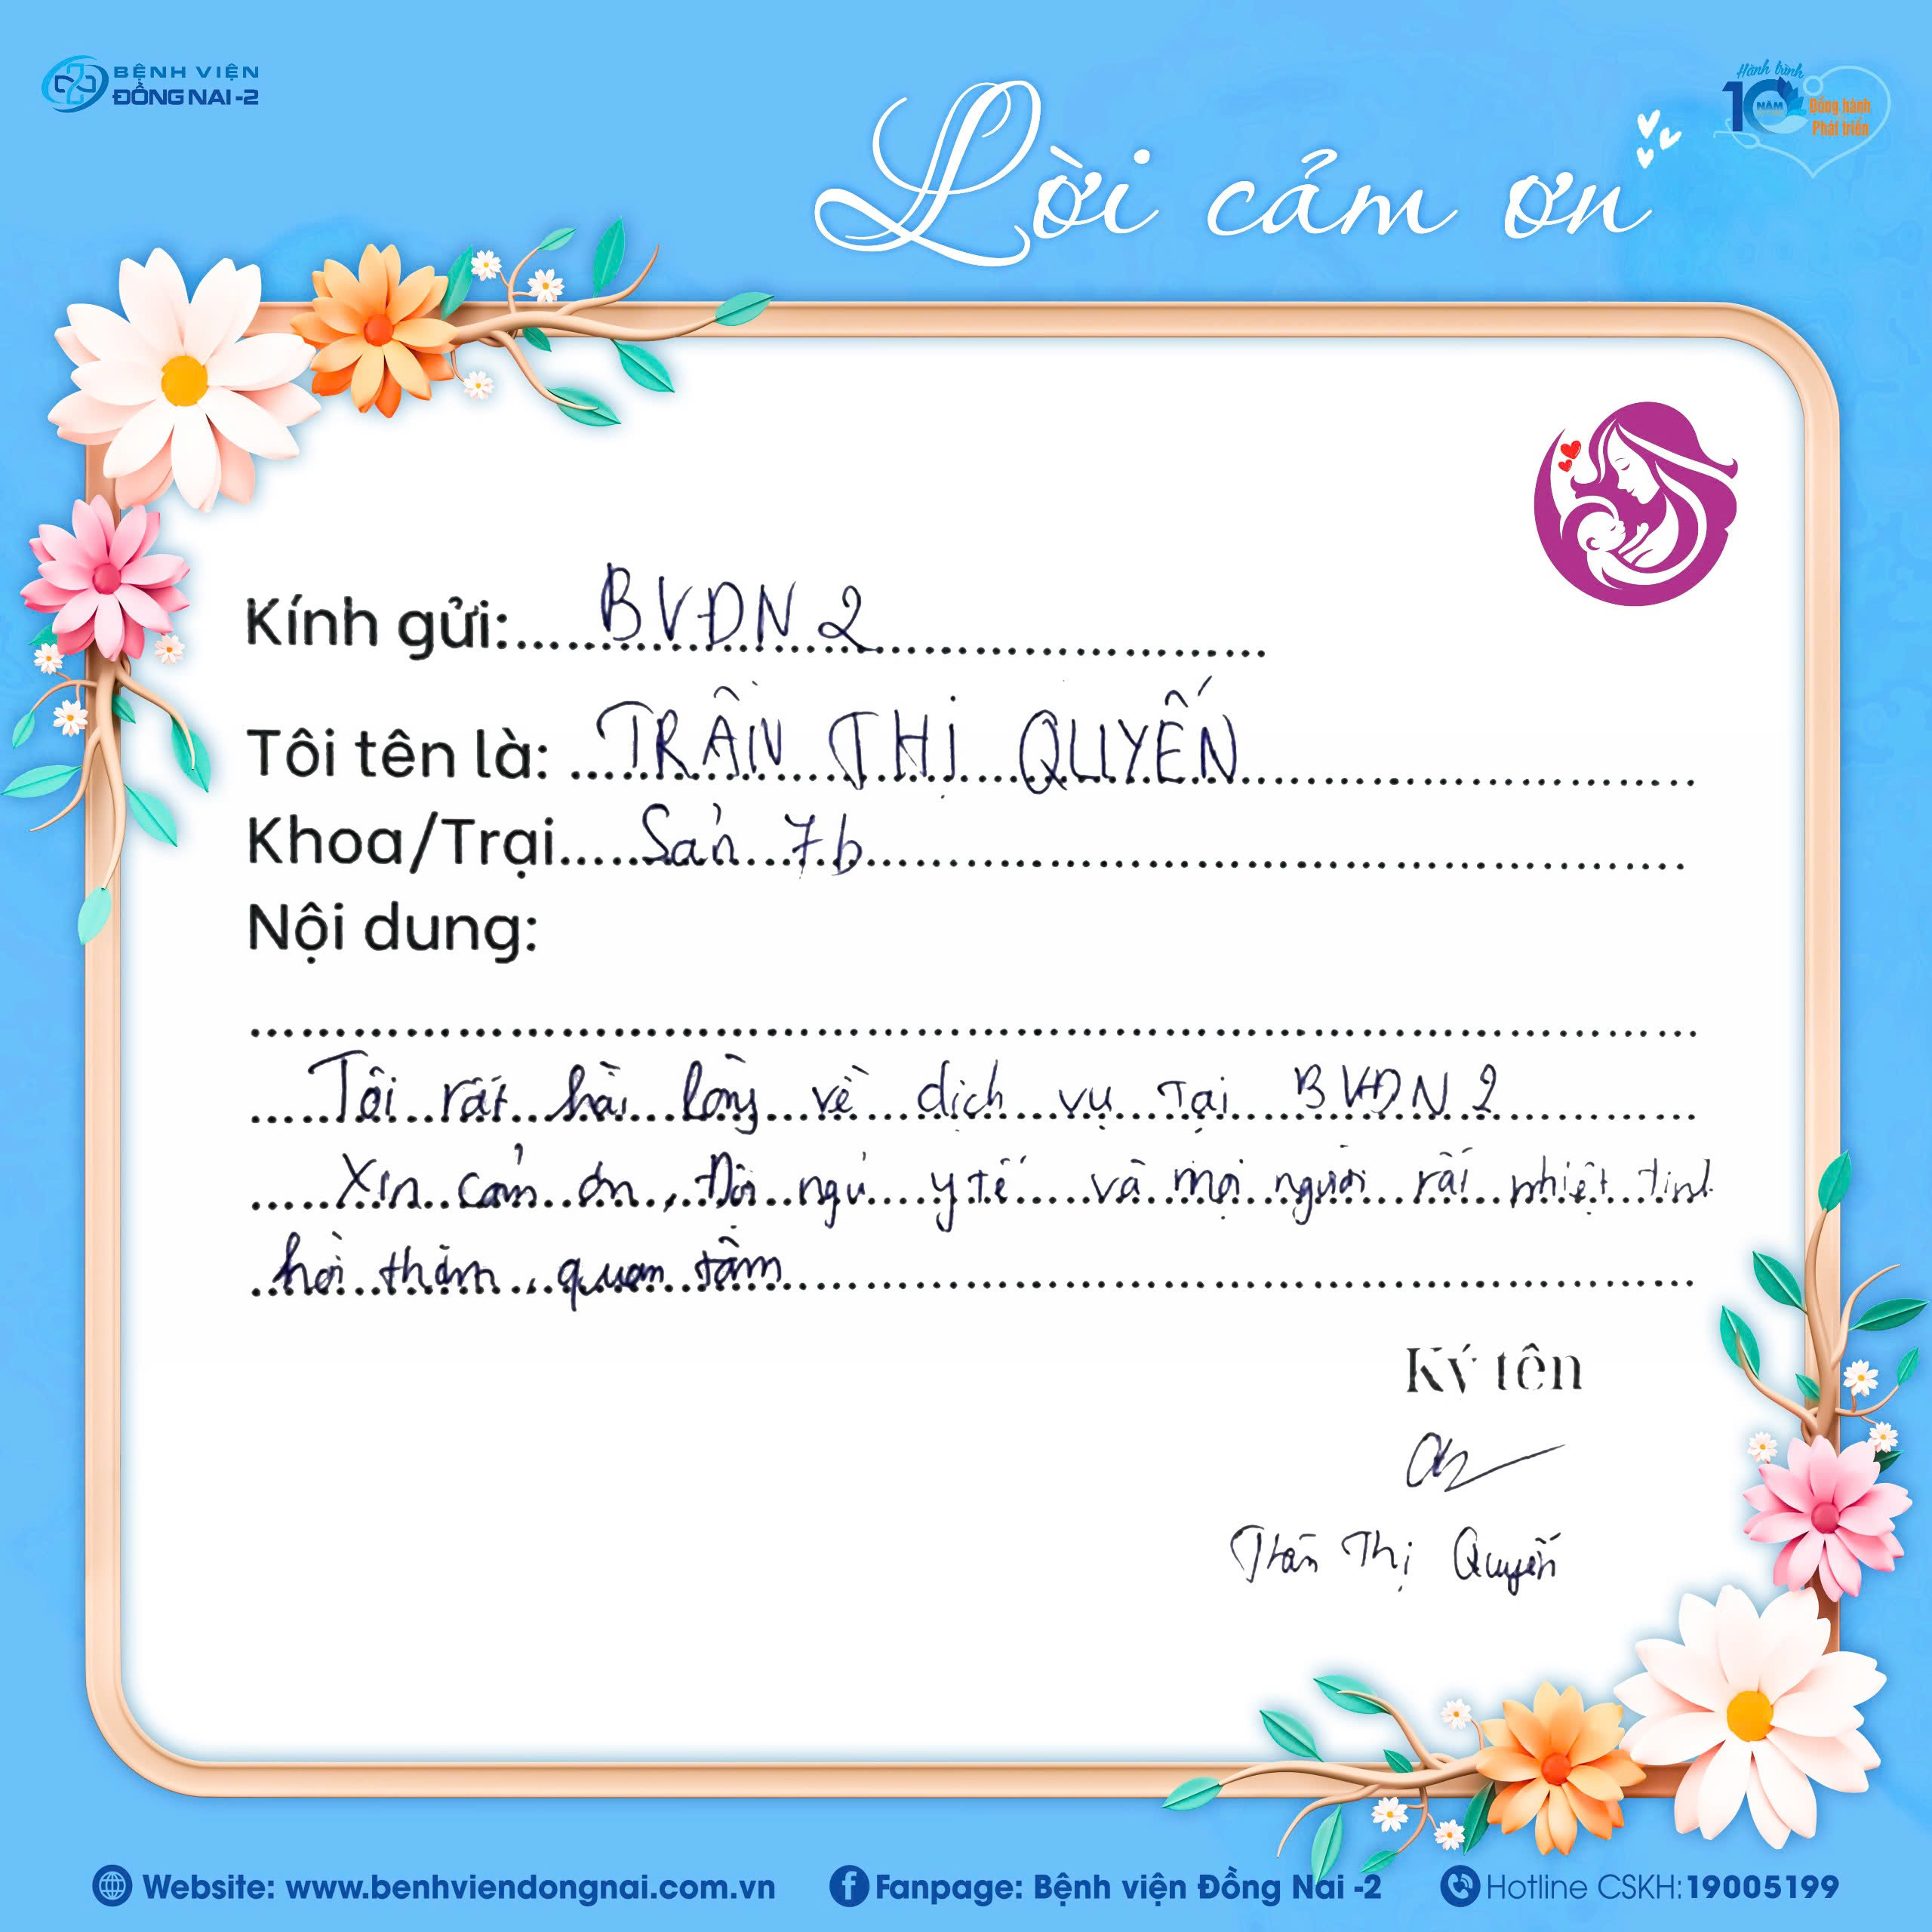 BỆNH VIỆN
ĐỒNG NAI -2
Hành trình
10 NĂM
Đồng hành
Phát triển
Lời cảm ơn
Kính gửi: BVĐN 2
Tôi tên là: TRẦN THỊ QUYẾN
Khoa/Trại Sản 7b
Nội dung:
Tôi rất hài lòng về dịch vụ tại BVĐN 2
Xin cảm ơn, Đội ngủ y tế và mọi người rất nhiệt tình
hỏi thăm, quan tâm
Ký tên
Trần Thị Quyến
Website: www.benhviendongnai.com.vn
Fanpage: Bệnh viện Đồng Nai -2
Hotline CSKH: 19005199